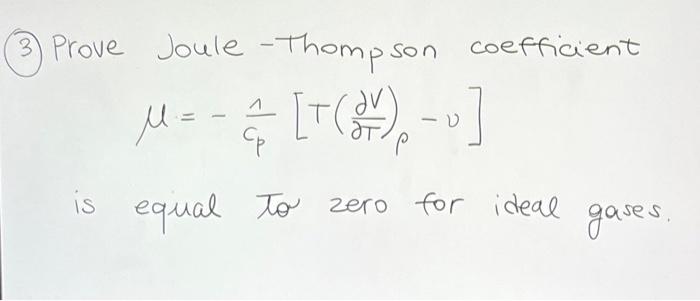 ③ Prove Joule-Thompson coefficient
μ = - 1/Cp [T(∂V/∂T)p - v]
is equal to zero for ideal gases.